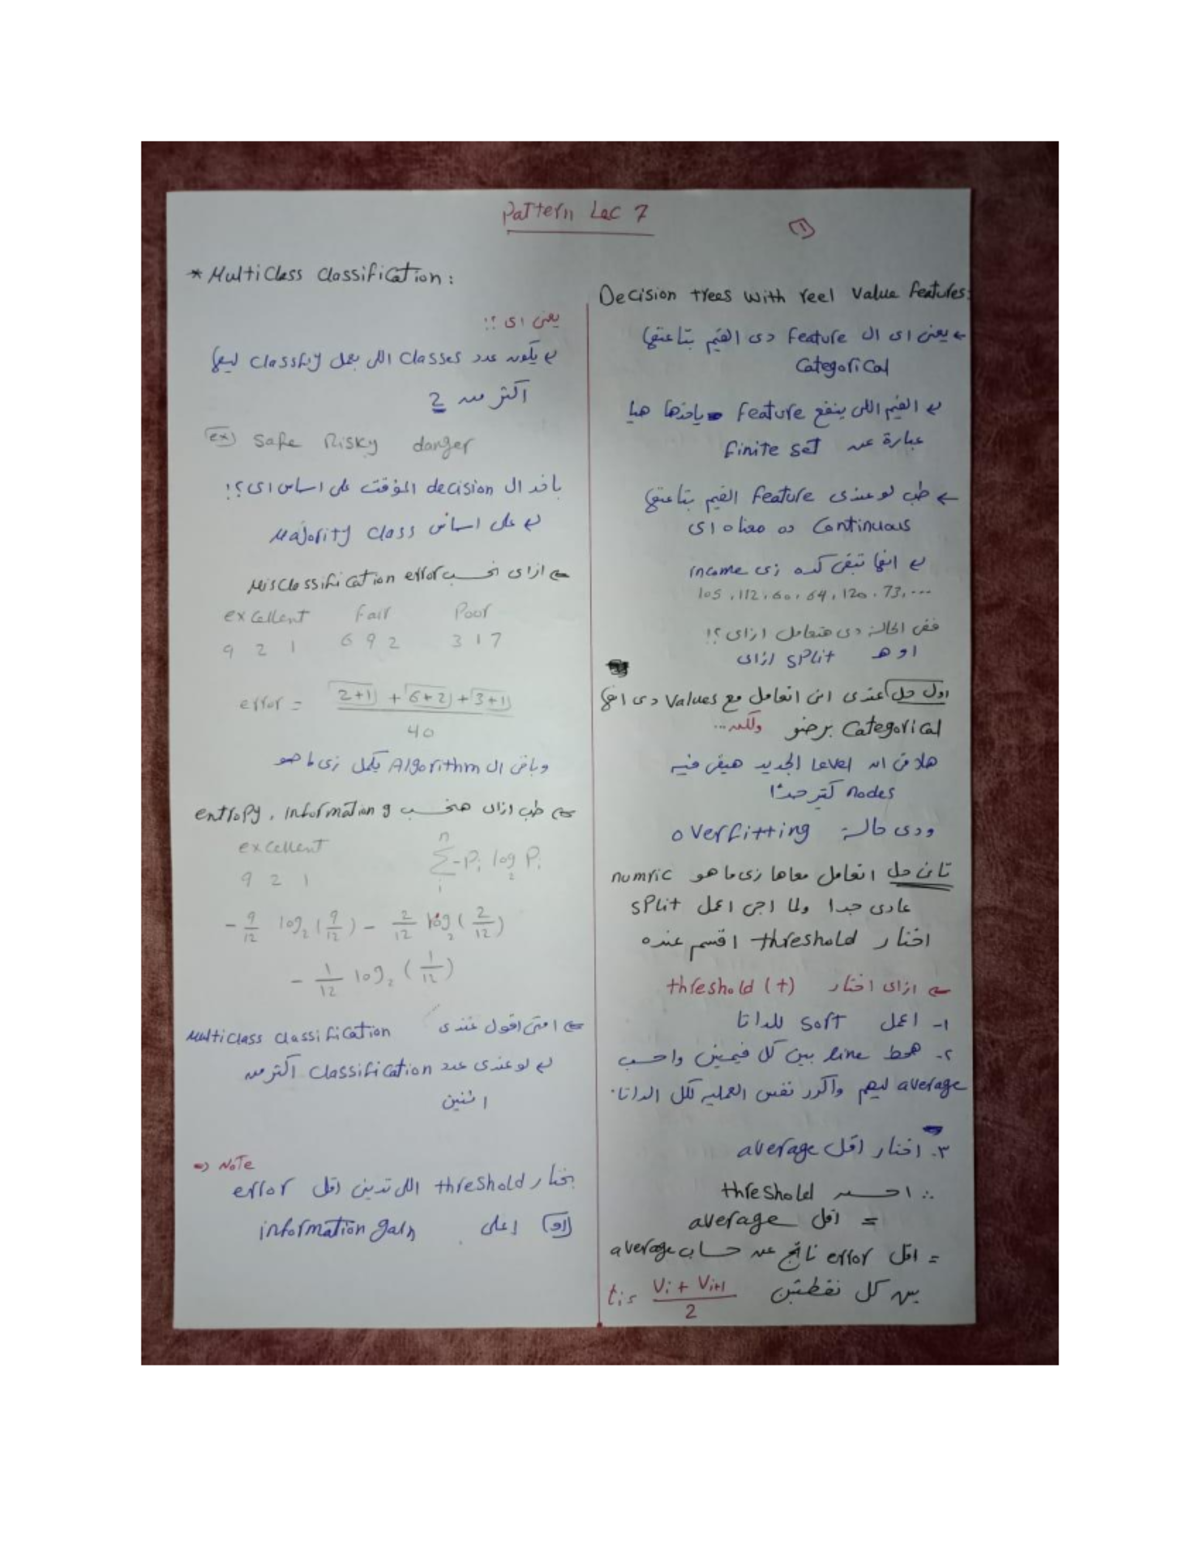 Pattern Lec 7
1
* Multiclass classification:
يعنى اى ؟!
يكون عدد classes اللى بعمل classfiy ليها
اكتر من 2
ex) safe Risky danger
باخد ال decision المؤقت على اساس اى؟!
على اساس Majority class
ازاى نحسب Misclassification error
excellent Fair Poor
9 2 1 6 9 2 3 1 7
error = (2+1) + (6+2) + (3+1) / 40
وباقى ال Algorithm يكمل زى ما هو
طب ازاى هنحسب entropy, information g
excellent
9 2 1
n ∑ 1 -Pi log2 Pi
- 9/12 log2 (9/12) - 2/12 log2 (2/12)
- 1/12 log2 (1/12)
امتى اقول عندى Multiclass classification
لو عندى عدد classification اكتر من
اثنين
=> Note
بختار threshold اللى تدينى اقل error
(او) اعلى information gain
Decision trees with reel value features:
يعنى اى ال feature دى القيم بتاعتها
Categorical
القيم اللى ينفع feature ياخدها هيا
عبارة عن finite set
طب لو عندى feature القيم بتاعتها
continuous ده معناه اى
انها تبقى كده زى income
105, 112, 60, 64, 120, 73, ...
ففى الحالة دى هتعامل ازاى؟!
او هـ split ازاى
اول حل عندى انى اتعامل مع values دى انها
categorical برضو ولكن...
هلاقى ان level الجديد هيبقى فيه
nodes كتير جدًا
ودى حالة overfitting
تانى حل اتعامل معاها زى ما هو numric
عادى جدا ولما اجى اعمل split
اختار threshold اقسم عنده
ازاى اختار threshold (t)
١- اعمل sort للداتا
٢- هحط line بين كل قيمتين واحسب
average ليهم واكرر نفس العمليه لكل الداتا.
٣. اختار اقل average
∴ احسن threshold
= اقل average
= اقل error ناتج عن حساب average
بين كل نقطتين ti = Vi + Vi+1 / 2